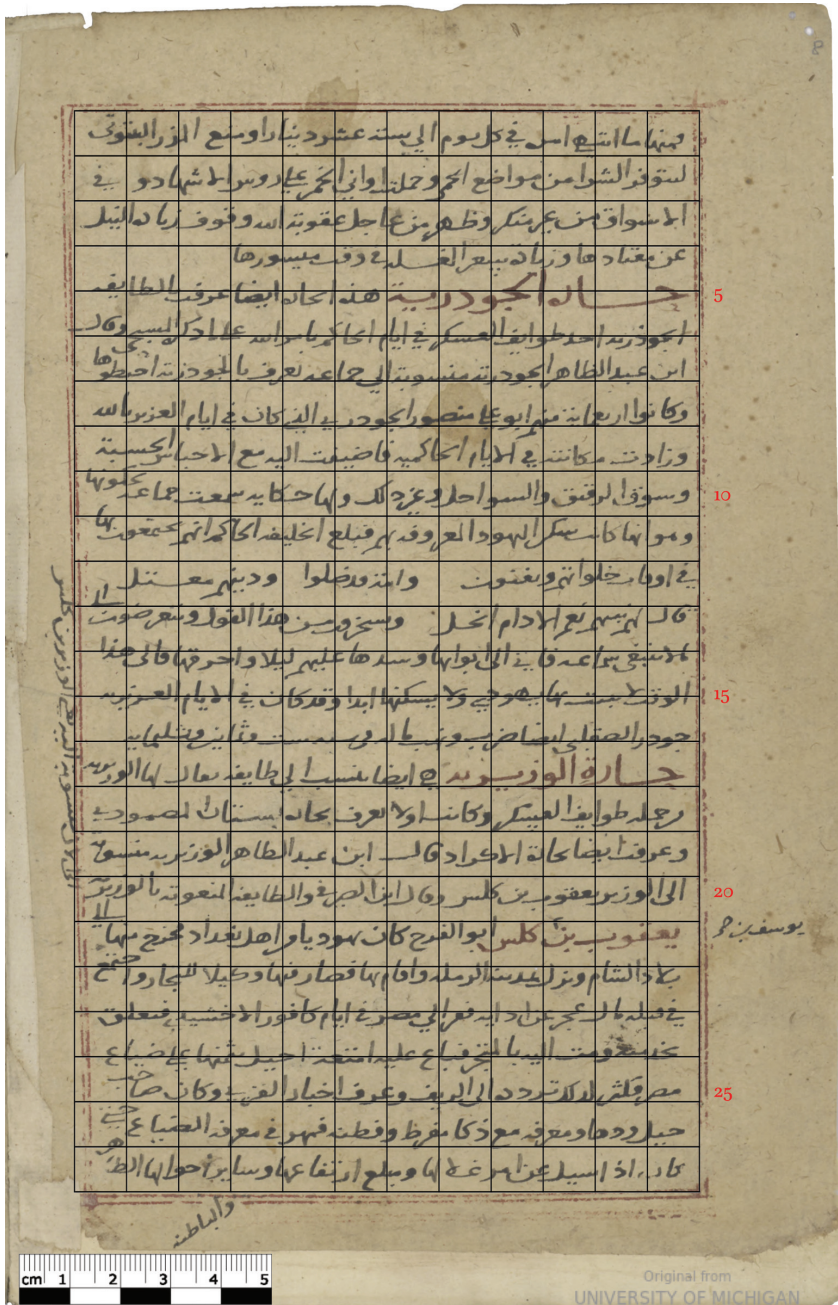 ضمنها ما انتهى امره في كل يوم الى ستة عشر دينارا ومنع المزر البيوتى
ليتوفر الشرا من مواضع الخمر وحملت اواني الخمر على روس الاشهاد و في
الاسواق من غير منكر وظهر من عاجل عقوبة الله وقوف زيادة النيل
عن معتادها وزيادة سعر الغلة في وقت ميسورها
حارة الجودرية هذه الحارة ايضا عرفت بالطايفة
الجوذرية احد طوايف العسكر في ايام الحاكم بامر الله على ما ذكره المسبحى وقال
ابن عبد الظاهر الجودرية منسوبة الى جماعة تعرف بالجودرية اختطوها
وكانوا اربعماية منهم ابو على منصور الجودري الذي كان في ايام العزيز بالله
وزادت مكانته في الايام الحاكمية فاضيفت اليه مع الاحباس الحسبة
وسوق الرقيق والسواحل وغير ذلك ولها حكاية سمعت جماعة يحكونها
وهو انها كانت سكن اليهود المعروفة بهم فبلغ الخليفة الحاكم انهم يجتمعون بها
في اوقات خلواتهم ويغنون وامة قد ضلوا ودينهم معتل
قال لهم نبيهم نعم الادام الخل ويسخرون من هذا القول ويتعرضون الى
ما لا ينبغي سماعه فاتى الى ابوابها وسدها عليهم ليلا واحرقها فالى هذا
الوقت لا يبيت بها يهودي ولا يسكنها ابدا وقد كان في الايام العزيزية
جودر الصقلى ايضا ضرب ونهب ماله في سنة ست وثمانين وثلثماية
حارة الوزيرية هي ايضا تنسب الى طايفة يقال لها الوزيرية
من جملة طوايف العسكر وكانت اولا تعرف بحارة بستان المصمودى
وعرفت ايضا بحارة الاكراد قال ابن عبد الظاهر الوزيرية منسوبة
الى الوزير يعقوب بن كلس وقال ابن الصيرفى والطايفة المنعوتة بالوزيرية الى
يعقوب بن كلس ابو الفرج كان يهوديا من اهل بغداد فخرج منها الى
بلاد الشام ونزل بمدينة الرملة واقام بها فصار فيها وكيلا للتجار واجتمع
في قبله مال عجز عن ادايه ففر الى مصر في ايام كافور الاخشيدى فتعلق
بخدمته ومت اليه بالمتجر فباع عليه امتعة احيل بثمنها على ضياع
مصر فكثر لذلك تردده الى الريف وعرف اخبار القرى وكان صاحب
حيل ودها ومعرفة مع ذكا مفرط وفطنة فمهر في معرفة الضياع حتى
كان اذا سيل عن امر غلالها ومبلغ ارتفاعها وساير احوالها الظاهرة
والباطنة
يوسف بن
الى الان منسوبة اليه يعني الوزير بن كلس
5
10
15
20
25
8
cm 1 2 3 4 5
Original from
UNIVERSITY OF MICHIGAN